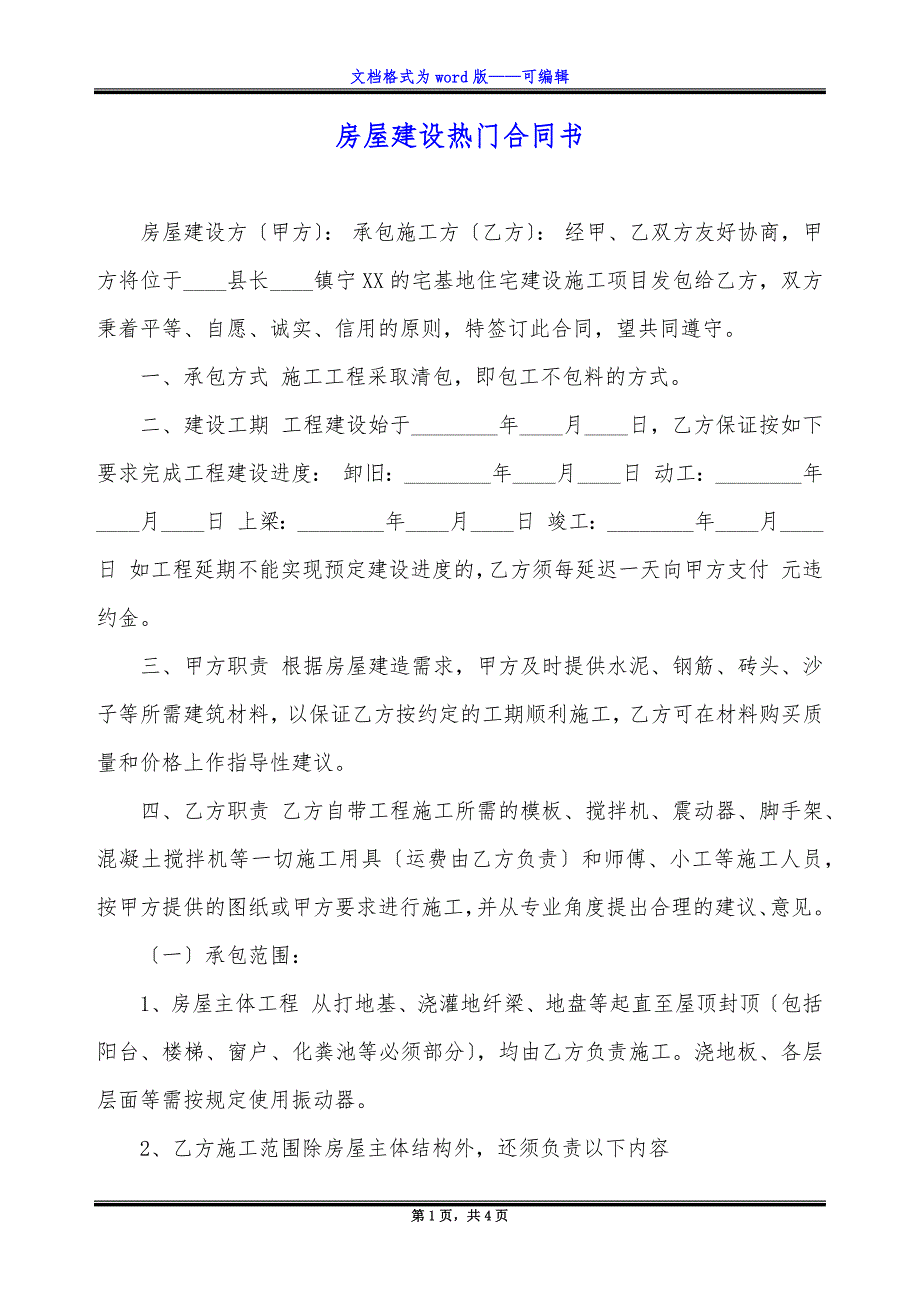 文档格式为 word 版——可编辑
房屋建设热门合同书
房屋建设方〔甲方〕： 承包施工方〔乙方〕： 经甲、乙双方友好协商，甲
方将位于____县长____镇宁 XX 的宅基地住宅建设施工项目发包给乙方，双方
秉着平等、自愿、诚实、信用的原则，特签订此合同，望共同遵守。
一、承包方式 施工工程采取清包，即包工不包料的方式。
二、建设工期 工程建设始于________年____月____日，乙方保证按如下
要求完成工程建设进度： 卸旧：________年____月____日 动工：________年
____月____日 上梁：________年____月____日 竣工：________年____月____
日 如工程延期不能实现预定建设进度的，乙方须每延迟一天向甲方支付 元违
约金。
三、甲方职责 根据房屋建造需求，甲方及时提供水泥、钢筋、砖头、沙
子等所需建筑材料，以保证乙方按约定的工期顺利施工，乙方可在材料购买质
量和价格上作指导性建议。
四、乙方职责 乙方自带工程施工所需的模板、搅拌机、震动器、脚手架、
混凝土搅拌机等一切施工用具〔运费由乙方负责〕和师傅、小工等施工人员，
按甲方提供的图纸或甲方要求进行施工，并从专业角度提出合理的建议、意见。
〔一〕承包范围：
1、房屋主体工程 从打地基、浇灌地纤梁、地盘等起直至屋顶封顶〔包括
阳台、楼梯、窗户、化粪池等必须部分〕，均由乙方负责施工。浇地板、各层
层面等需按规定使用振动器。
2、乙方施工范围除房屋主体结构外，还须负责以下内容
第 1 页，共 4 页